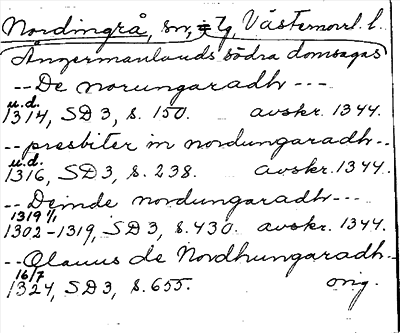 Nordingrå, sn, Tg, Västernorrl. l.
Ångermanlands södra domsagas
-- De norungaradh ---
u.d.
1314, SD 3, s. 150. avskr. 1344.
-- presbiter in nordungaradh --
u.d.
1316, SD 3, s. 238. avskr. 1344.
-- Deinde nordungaradh ---
1319 1/1
1302-1319, SD 3, s. 430. avskr. 1344.
-- Olauus de Nordhungaradh --
16/7
1324, SD 3, s. 655. orig.